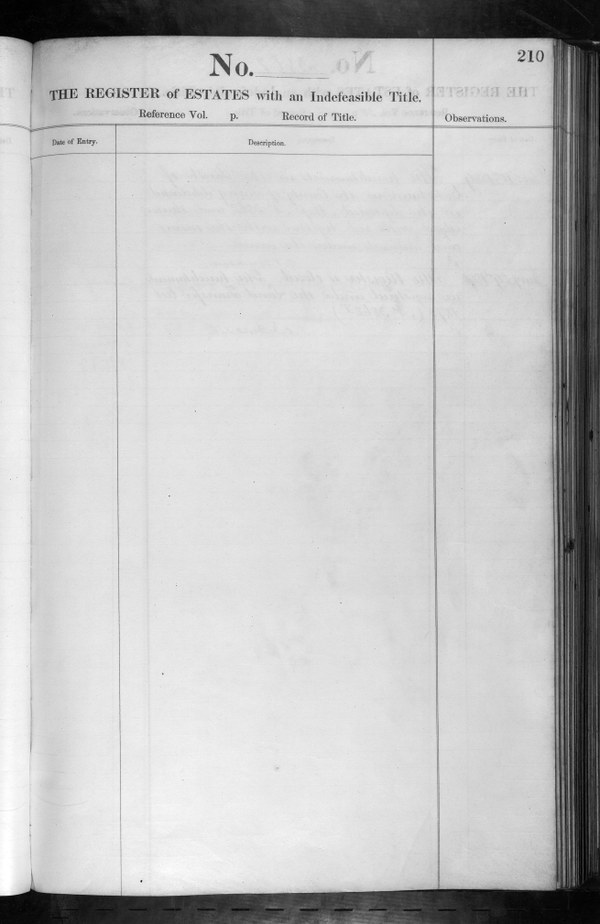 210
No.
THE REGISTER of ESTATES with an Indefeasible Title.
Reference Vol. p. Record of Title.
Observations.
Date of Entry.
Description.